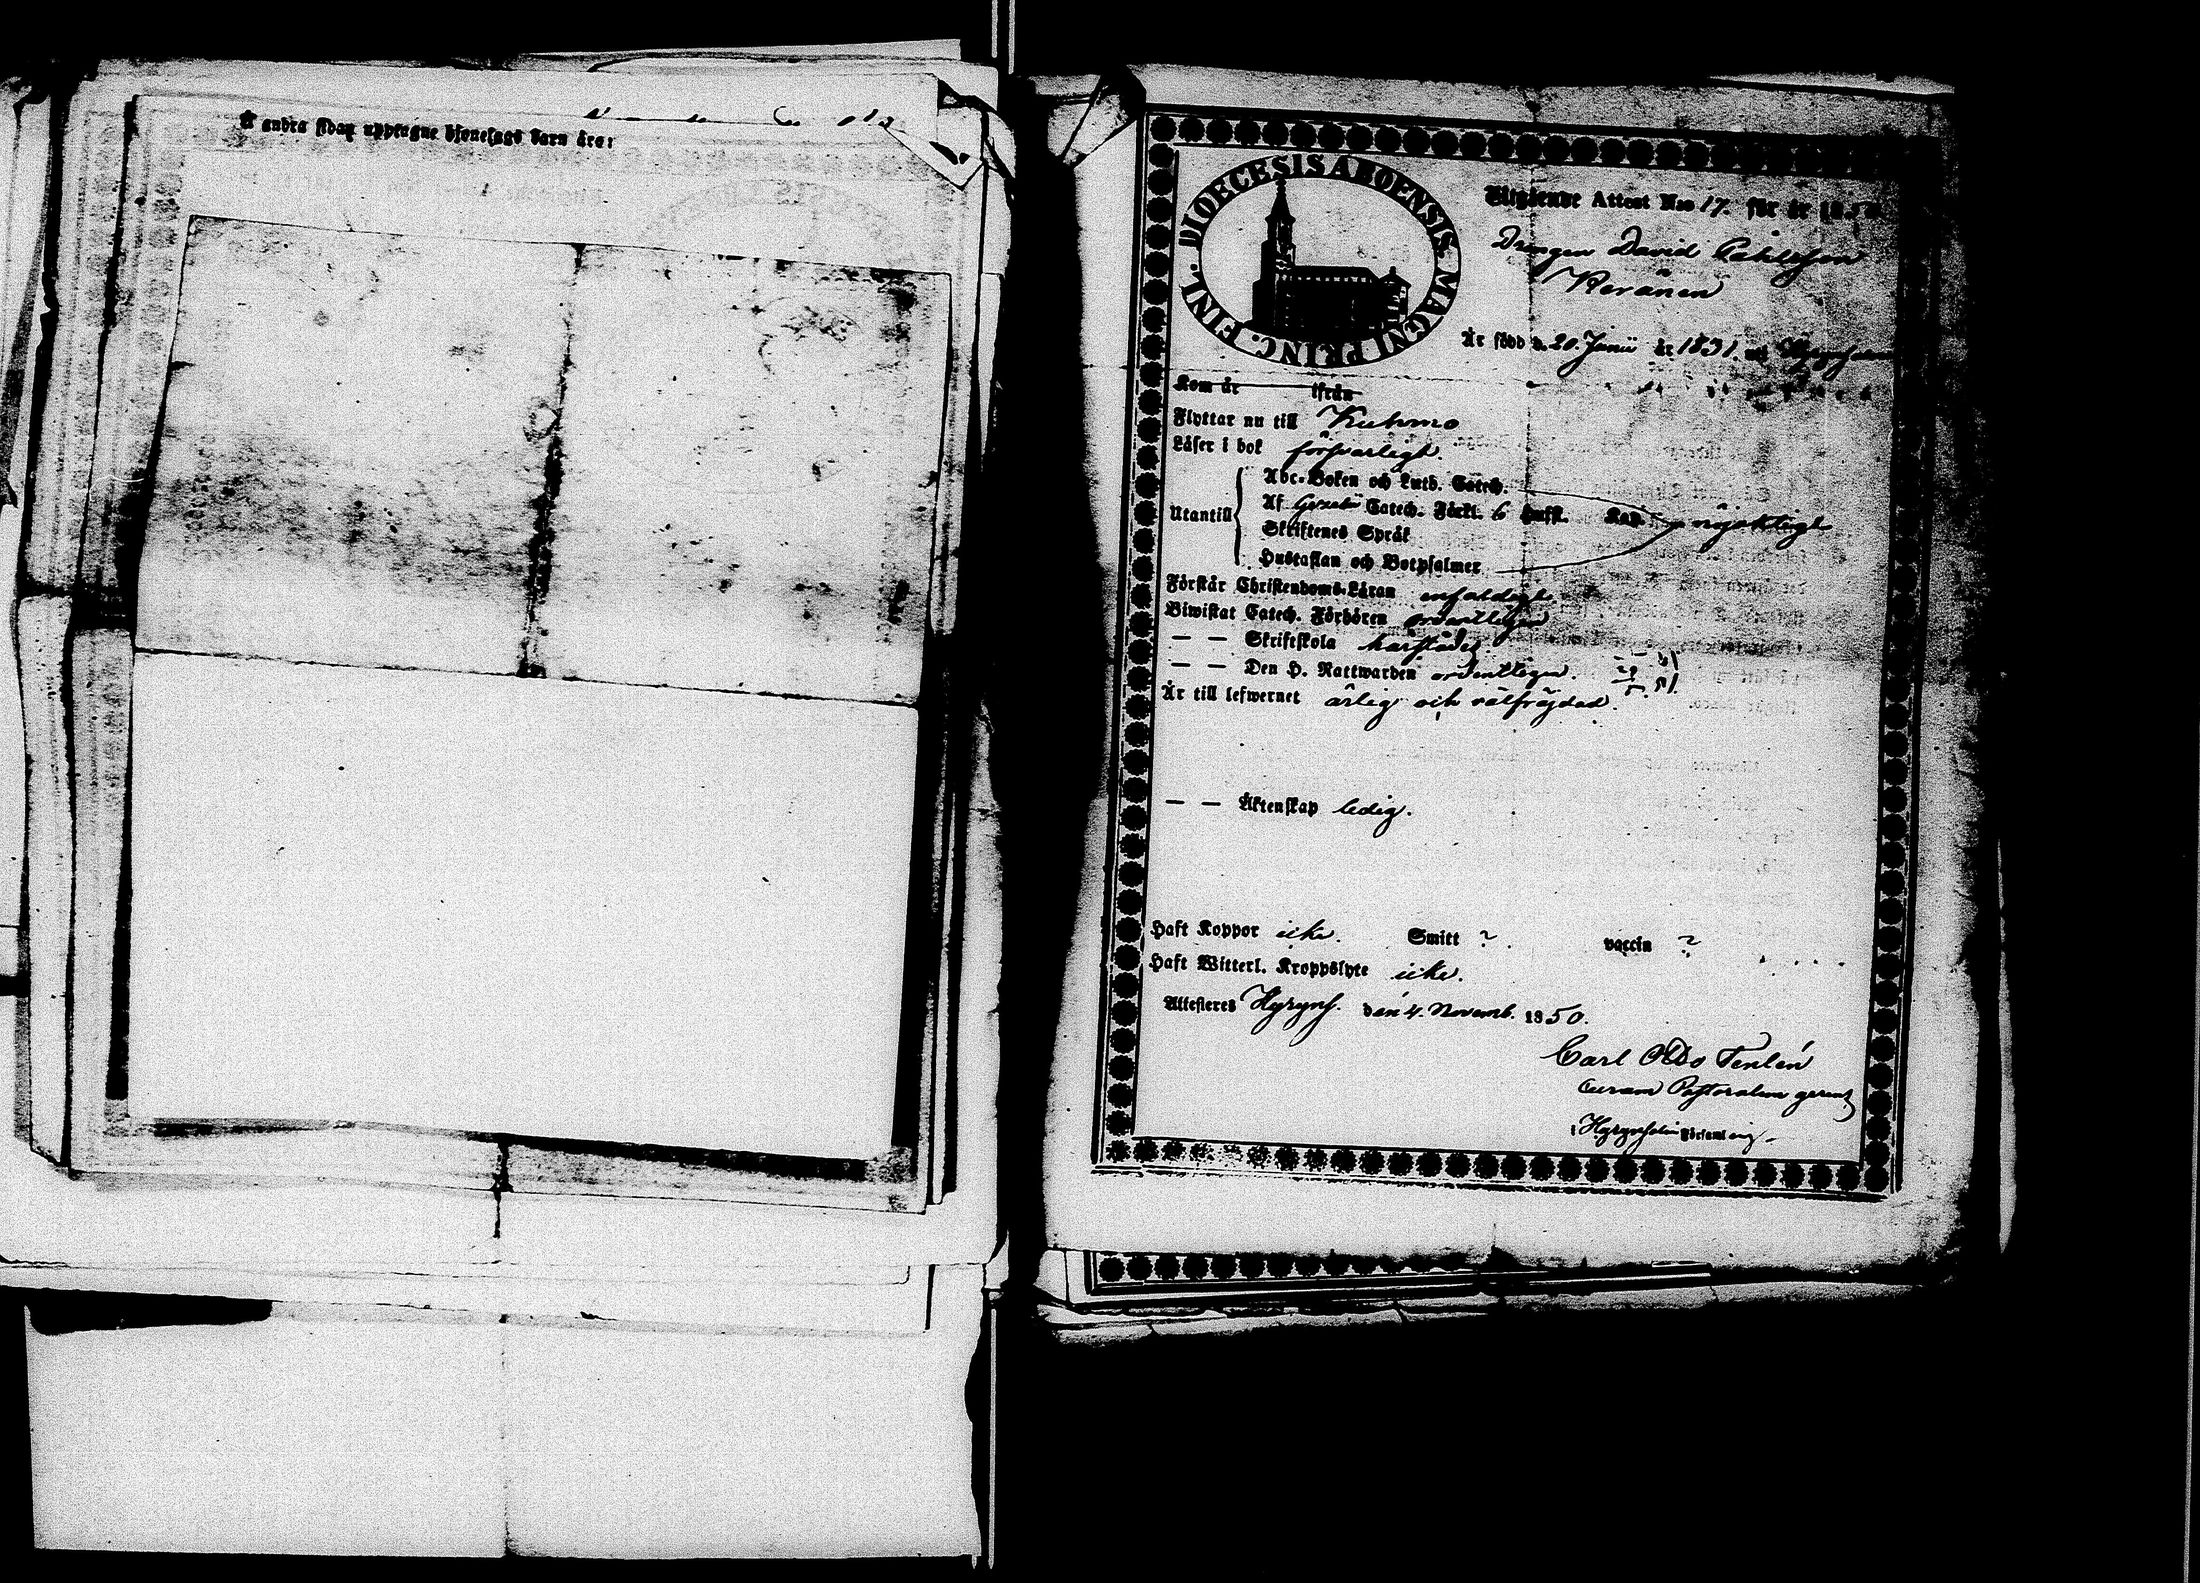 Å andra sidan upptagne ofvenelags barn äro:
DIOECESIS ABOENSIS. MAGNI PRINC. FINL.
Utgående Attest N:o 17. för år 1850
Drengen David Pehlsson
Keränen
Är född d. 20. Junii år 1831. uti Hyrynsalmi
Kom år ifrån
Flyttar nu till Kuhmo
Läser i bok försvarligt.
Abc-Boken och Luth. Catech.
Utantill Af Gezelii Catech. Förkl. 6 Hufst. Kap. nöjaktigt
Skriftenes Språk
Hustaflan och Botpsalmer
Förstår Christendoms-Läran enfaldigt
Biwistat Catech. Förhören ordentligen
— — Skriftskola härstädes.
— — Den H. Nattwarden ordentligen.
Är till lefwernet ärlig och välfräjdad.
— — Äktenskap ledig.
Haft Koppor icke. Smitt ? vaccin ?
Haft Witterl. Kroppslyte icke.
Attesteres Hyryns. den 4. Novemb. 1850.
Carl Otto Fenlén
Curam Pastoralem gerens
i Hyrynsalmi Församling